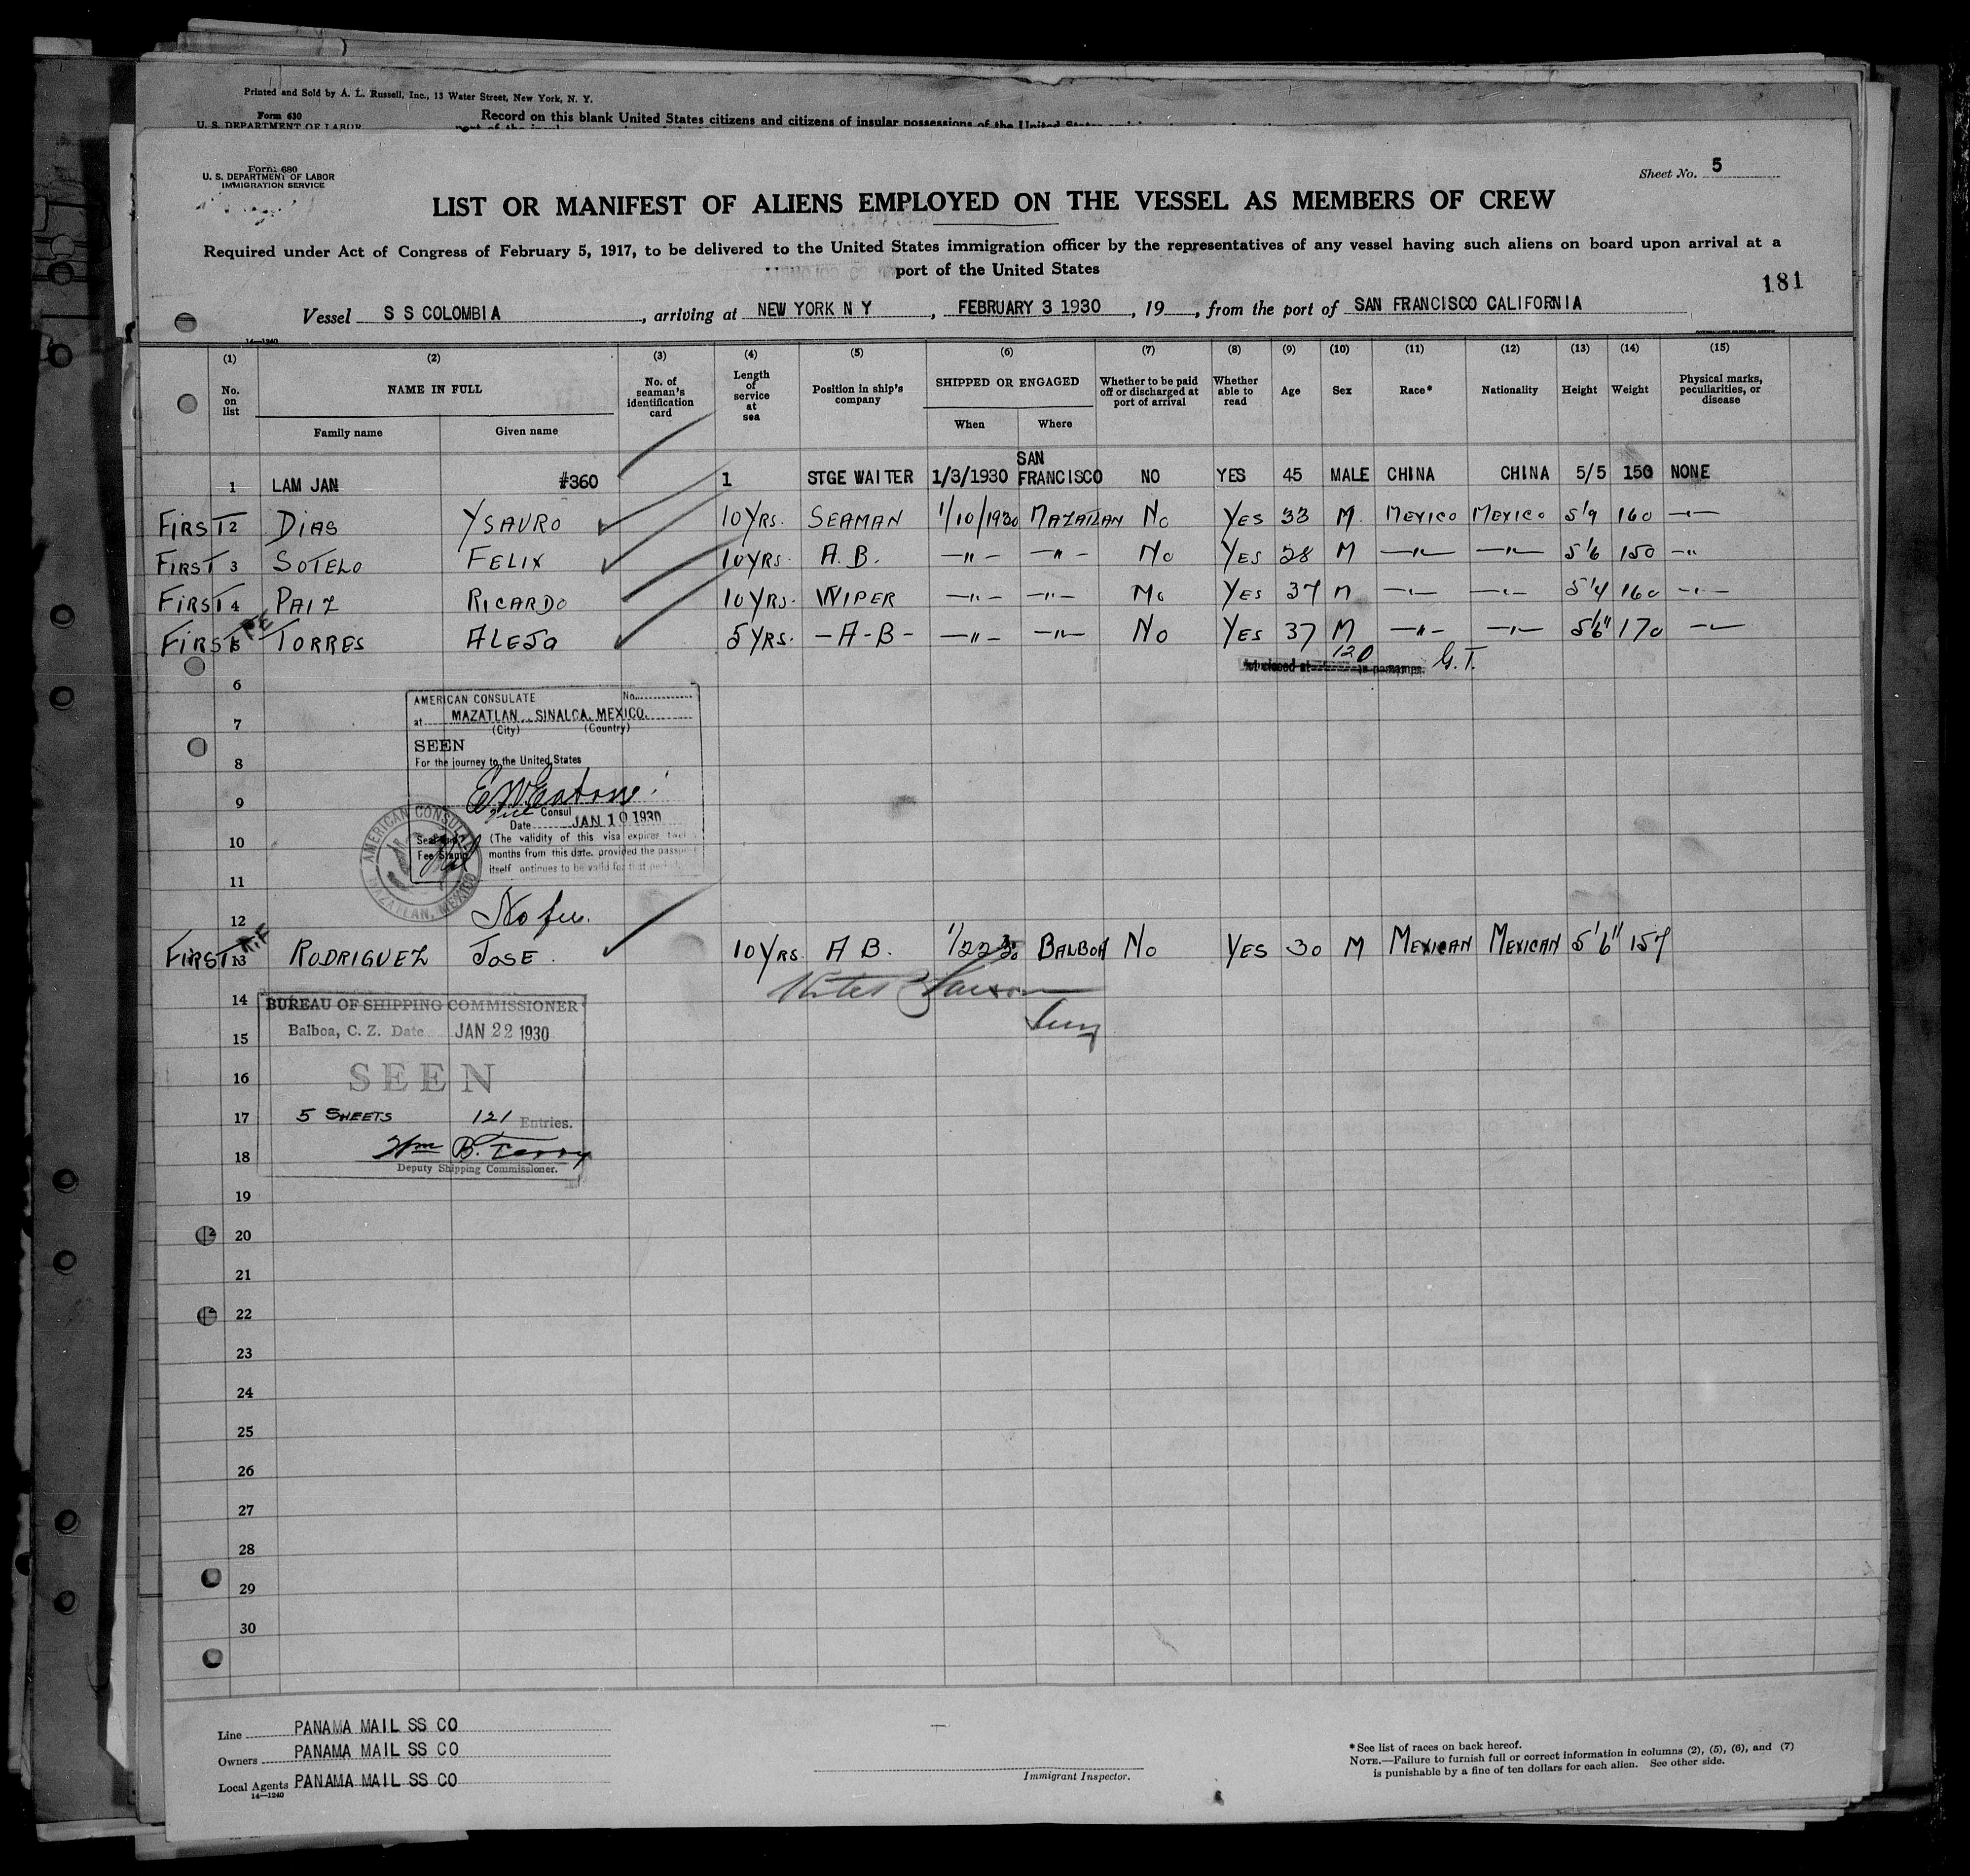 Printed and Sold by A. L. Russell, Inc., 13 Water Street, New York, N. Y.
Form 630
U. S. DEPARTMENT OF LABOR
Record on this blank United States citizens and citizens of insular possessions of the United States
Form 680
U. S. DEPARTMENT OF LABOR
IMMIGRATION SERVICE
Sheet No. 5
LIST OR MANIFEST OF ALIENS EMPLOYED ON THE VESSEL AS MEMBERS OF CREW
Required under Act of Congress of February 5, 1917, to be delivered to the United States immigration officer by the representatives of any vessel having such aliens on board upon arrival at a
port of the United States
181
Vessel S S COLOMBIA, arriving at NEW YORK N Y, FEBRUARY 3 1930, 19, from the port of SAN FRANCISCO CALIFORNIA
14—1240
(1) (2) (3) (4) (5) (6) (7) (8) (9) (10) (11) (12) (13) (14) (15)
No. on list NAME IN FULL No. of seaman's identification card Length of service at sea Position in ship's company SHIPPED OR ENGAGED Whether to be paid off or discharged at port of arrival Whether able to read Age Sex Race* Nationality Height Weight Physical marks, peculiarities, or disease
Family name Given name When Where
1 LAM JAN #360 1 STGE WAITER 1/3/1930 SAN FRANCISCO NO YES 45 MALE CHINA CHINA 5/5 150 NONE
FIRST 2 DIAS YSAURO 10 YRS. SEAMAN 1/10/1930 MAZATLAN No YES 33 M. MEXICO MEXICO 5'9 160 —"—
FIRST 3 SOTELO FELIX 10 YRS. A.B. —"— —"— No YES 28 M —"— —"— 5'6 150 —"
FIRST 4 PAIZ RICARDO 10 YRS. WIPER —"— —"— No YES 37 M —"— —"— 5'4 160 —"—
FIRST 5 PE TORRES ALEJO 5 YRS. —A-B— —"— —"— No YES 37 M —"— —"— 5'6" 170 —"—
120 G. T.
6
AMERICAN CONSULATE No.
7 at MAZATLAN, SINALOA, MEXICO.
(City) (Country)
SEEN
8 For the journey to the United States
E W Eaton
9
Vice Consul
Date JAN 10 1930
10 Seal and Fee Stamp (The validity of this visa expires twel
months from this date, provided the passport
itself continues to be valid for that period
AMERICAN CONSULATE
MAZATLAN, MEXICO
11
12 No fee.
FIRST 13 RODRIGUEZ JOSE. 10 YRS. A B. 1/22 30 BALBOA No YES 30 M MEXICAN MEXICAN 5'6" 157
14 BUREAU OF SHIPPING COMMISSIONER
15 Balboa, C. Z. Date JAN 22 1930
16 SEEN
17 5 SHEETS 121 Entries.
18 Wm B. Terry
Deputy Shipping Commissioner.
19
20
21
22
23
24
25
26
27
28
29
30
Line PANAMA MAIL SS CO
Owners PANAMA MAIL SS CO
Local Agents PANAMA MAIL SS CO
14—1240
Immigrant Inspector.
*See list of races on back hereof.
NOTE.—Failure to furnish full or correct information in columns (2), (5), (6), and (7)
is punishable by a fine of ten dollars for each alien. See other side.